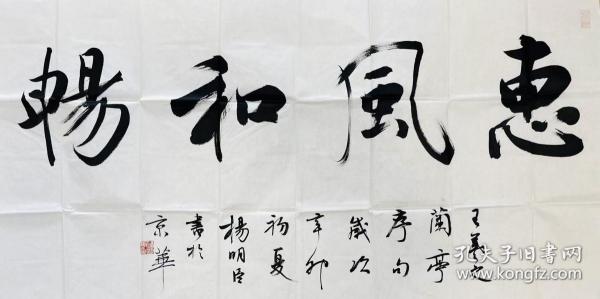 惠風和暢
王羲之
蘭亭
序句
歲次
辛卯
初夏
楊明臣
書於
京華
孔夫子旧书网
kongfz.com